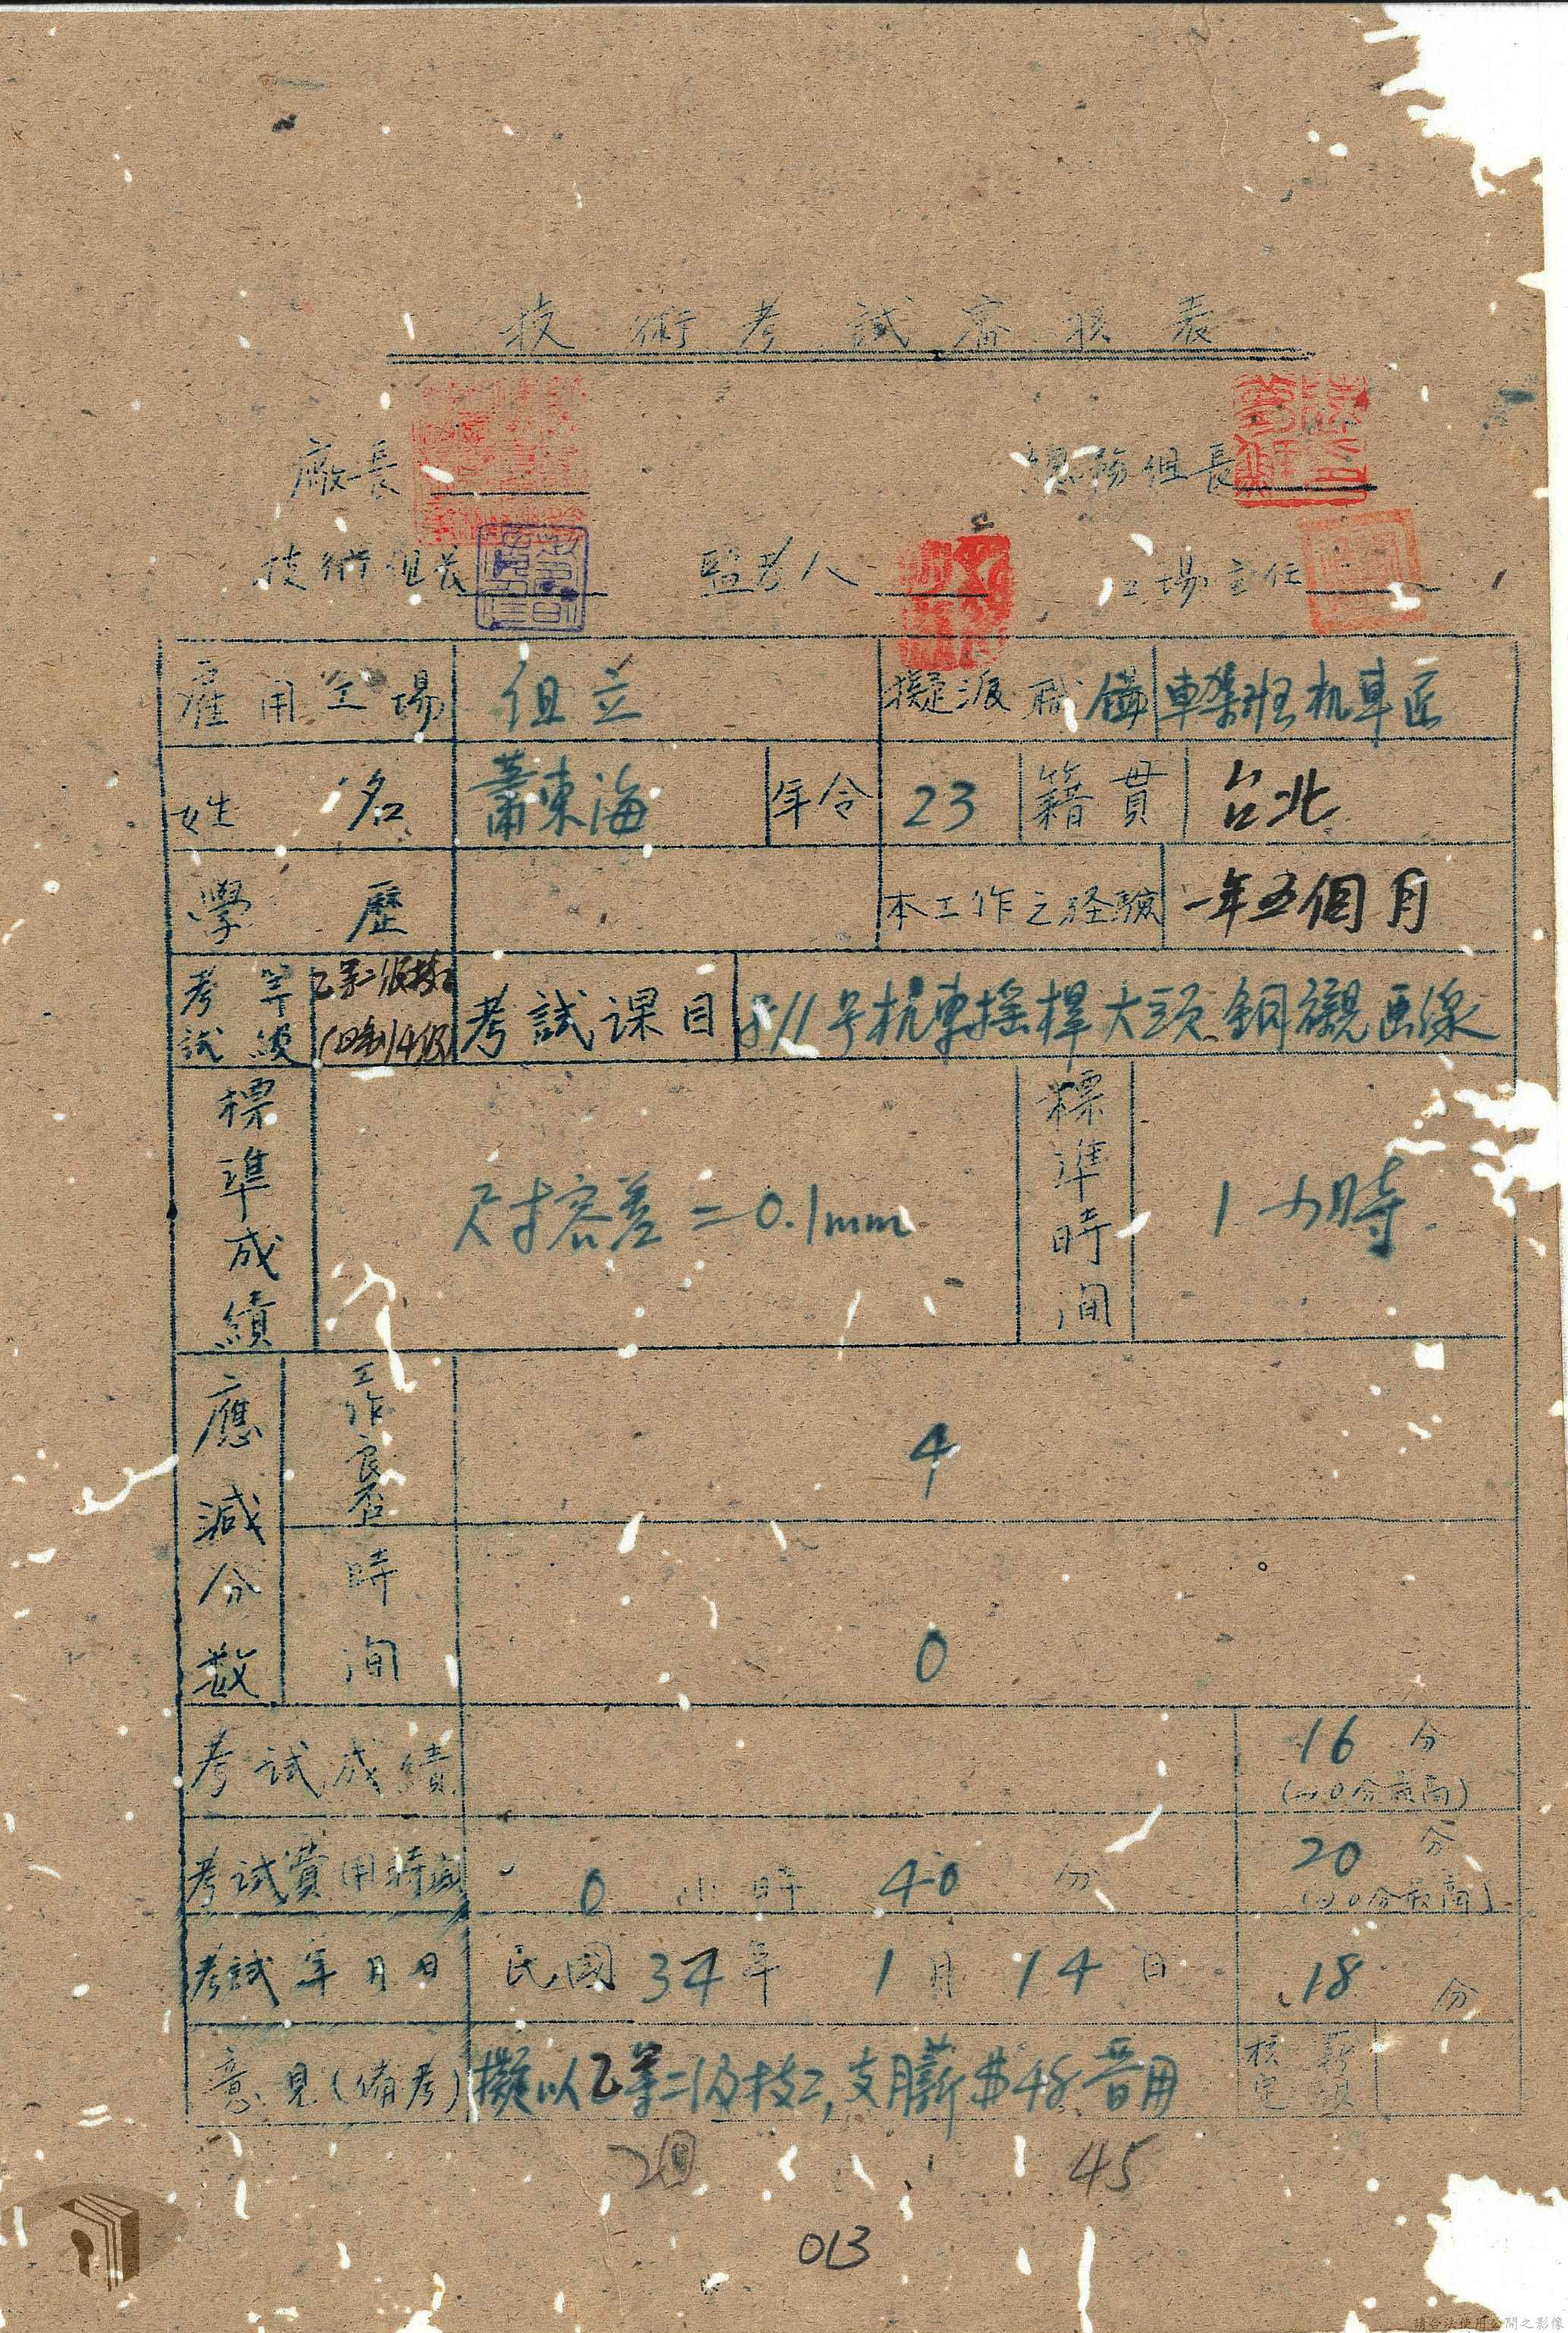 技術考試審核表
廠長 總務組長
技術組長 監考人 工場主任
雇用工場 組立 擬派職 車架班机車匠
姓名 蕭東海 年令 23 籍貫 台北
學歷 本工作之経驗 一年五個月
考試等級 乙等二級技工 考試課目 号机車摇桿大頭銅襯画線
標準成績 尺寸容差=0.1mm 標準時间 1小時
應減分数 工作良否 4
時间 0
考試成績 16分
(20分最高)
考試費用時间 0小時40分 20分
(20分最高)
考試年月日 民國34年1月14日 18分
意見(備考) 擬以乙等二級技工,支月薪 晋用 核定
45
013
請合法使用公開之影像